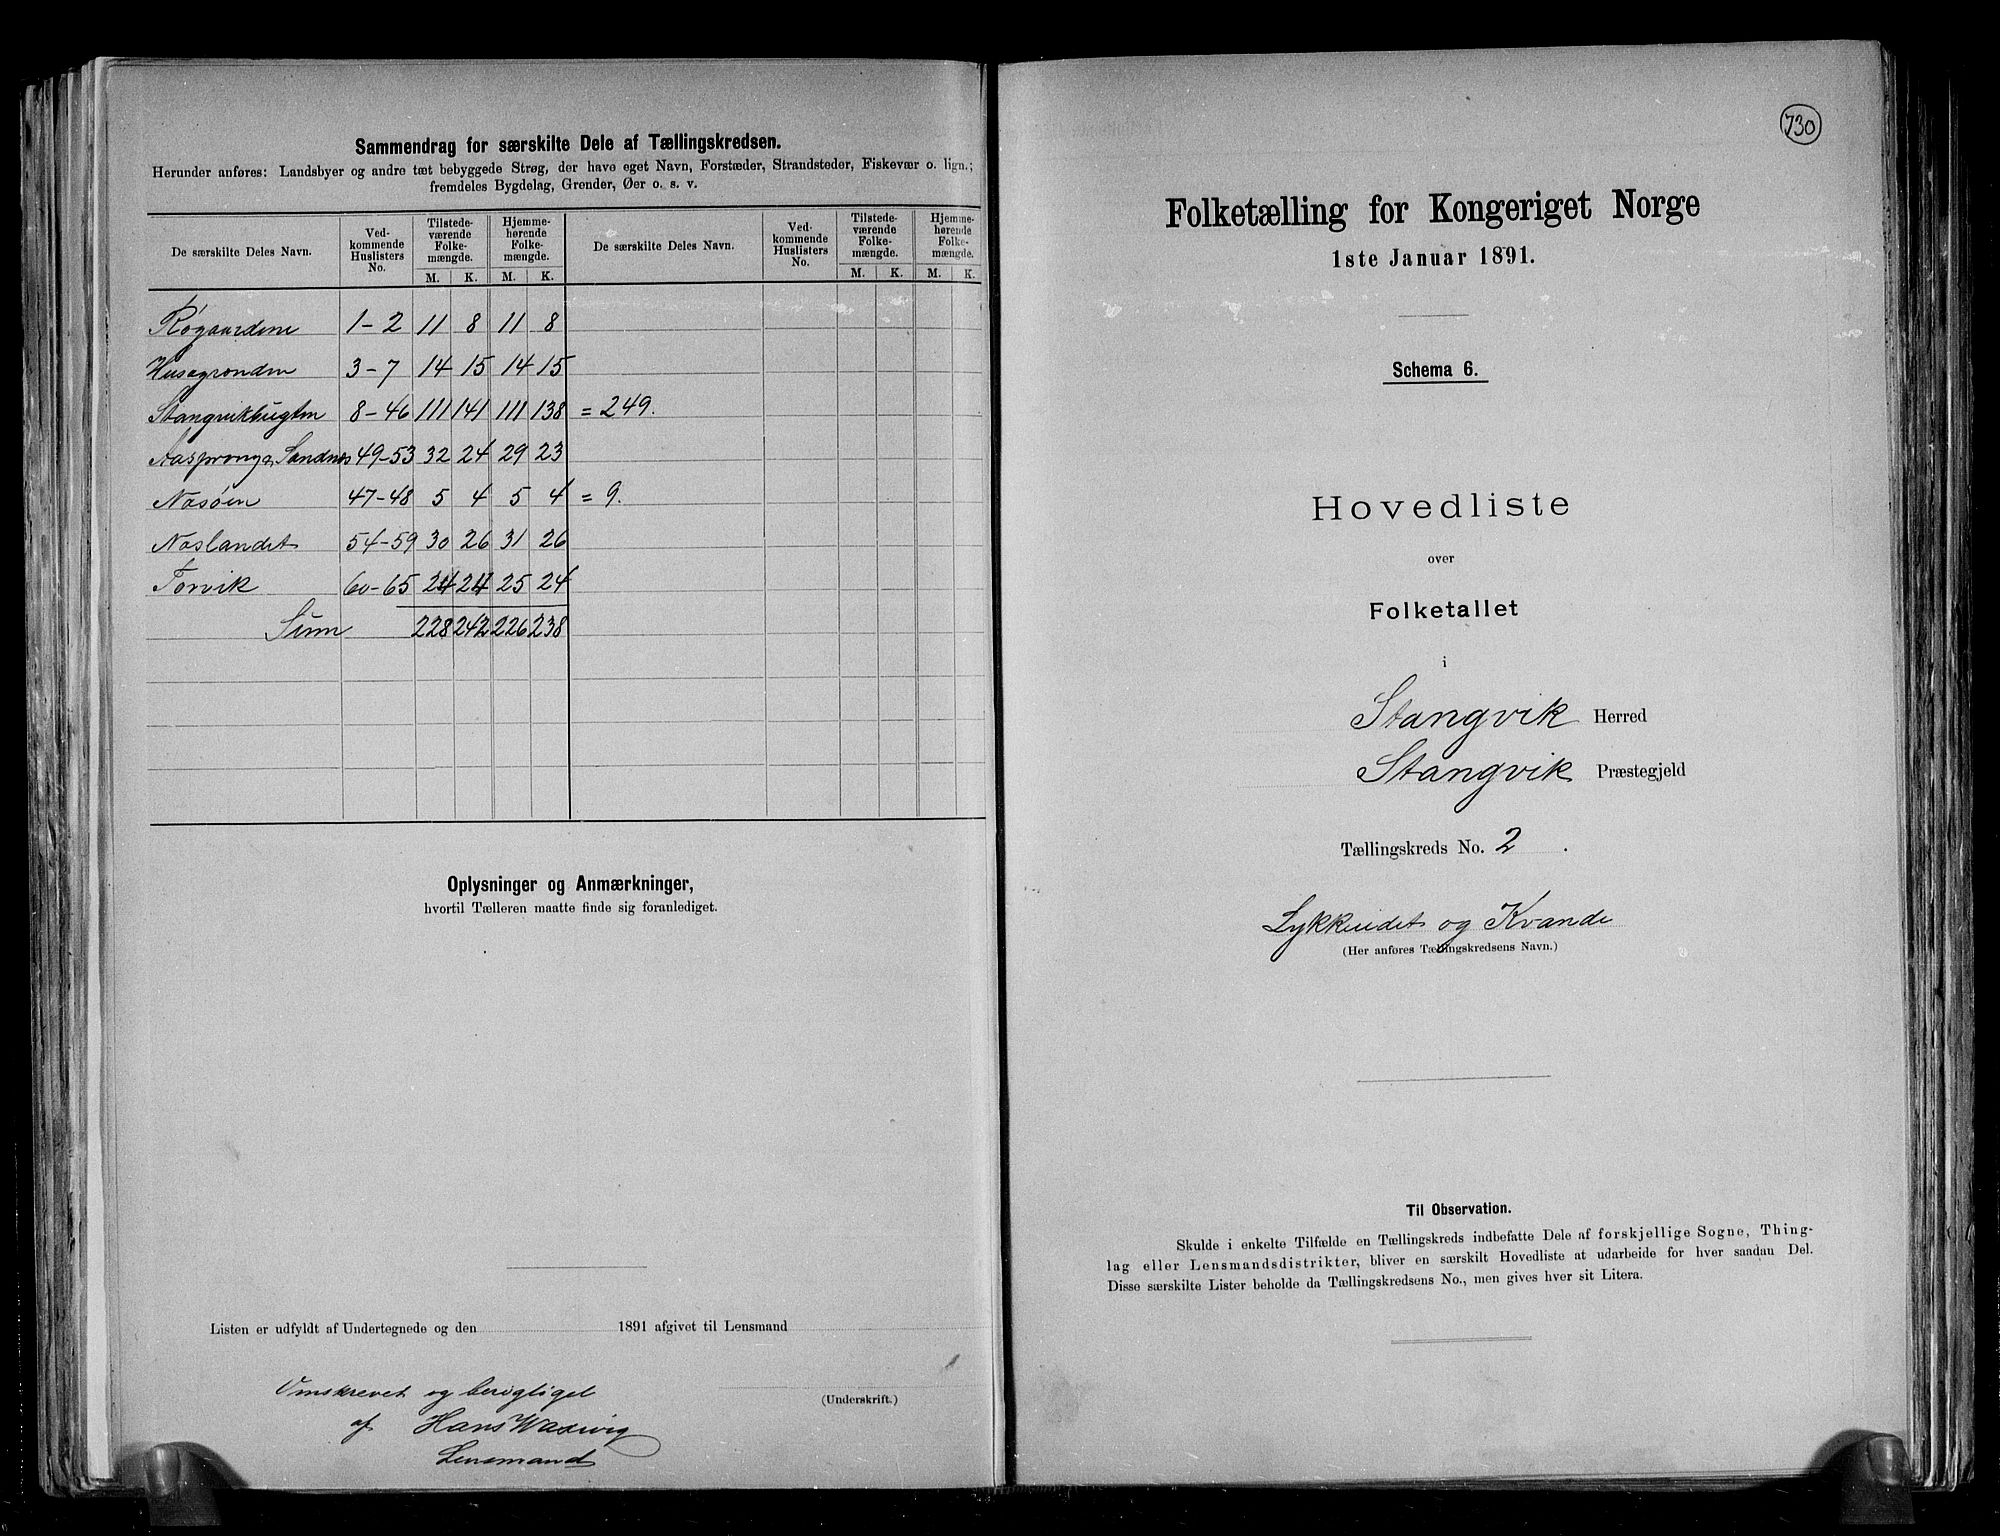 Sammendrag for særskilte Dele af Tællingskredsen.
Herunder anføres: Landsbyer og andre tæt bebyggede Strøg, der have eget Navn, Forstæder, Strandsteder, Fiskevær o. lign.;
fremdeles Bygdelag, Grender, Øer o. s. v.
De særskilte Deles Navn. Ved-kommende Huslisters No. Tilstede-værende Folke-mængde. Hjemme-hørende Folke-mængde. De særskilte Deles Navn. Ved-kommende Huslisters No. Tilstede-værende Folke-mængde. Hjemme-hørende Folke-mængde.
M. K. M. K. M. K. M. K.
Røgaardene 1-2 11 8 11 8
Husegrenden 3-7 14 15 14 15
Stangvikbugten 8-46 111 141 111 138 = 249.
Aasprong, Sandnes 49-53 32 24 29 23
Nasøen 47-48 5 4 5 4 = 9.
Naslandet 54-59 30 26 31 26
Torvik 60-65 24 24 25 24
Sum 228 242 226 238
Oplysninger og Anmærkninger,
hvortil Tælleren maatte finde sig foranlediget.
Listen er udfyldt af Undertegnede og den 1891 afgivet til Lensmand
(Underskrift.)
Omskrevet og berigtiget
af Hans Waxvig
Lensmand
730
Folketælling for Kongeriget Norge
1ste Januar 1891.
Schema 6.
Hovedliste
over
Folketallet
i
Stangvik Herred
Stangvik Præstegjeld
Tællingskreds No. 2.
Lykkeidet og Kvande
(Her anføres Tællingskredsens Navn.)
Til Observation.
Skulde i enkelte Tilfælde en Tællingskreds indbefatte Dele af forskjellige Sogne, Thing-
lag eller Lensmandsdistrikter, bliver en særskilt Hovedliste at udarbeide for hver saadau Del.
Disse særskilte Lister beholde da Tællingskredsens No., men gives hver sit Litera.